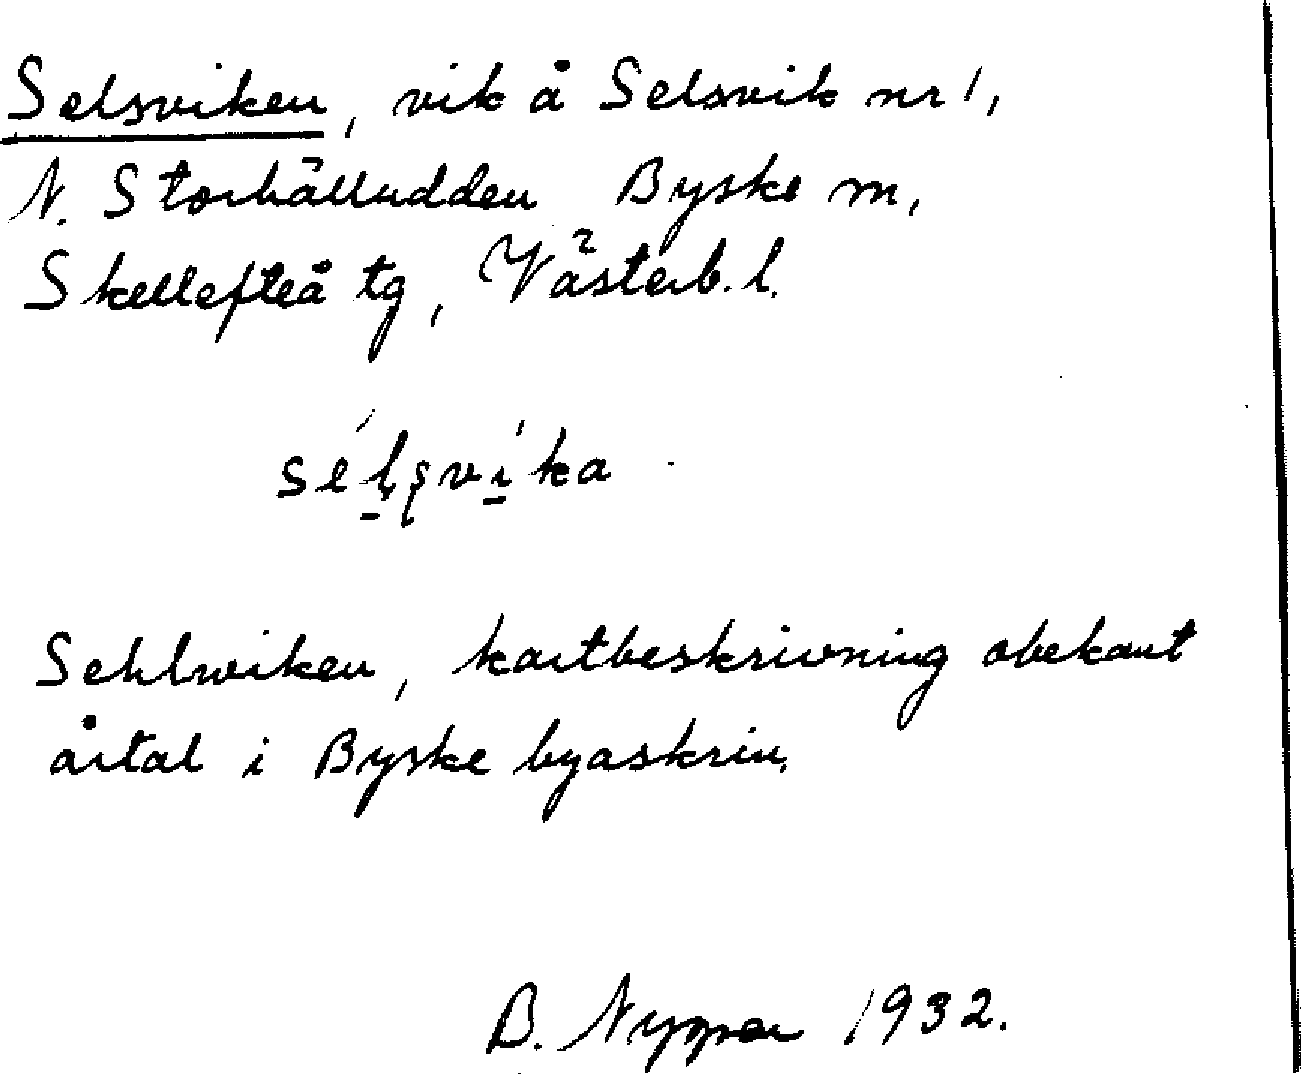 Selsviken, vik å Selsvik nr 1,
N. Storhälludden Byske m,
Skellefteå tg, Västerb. l.
séḷṣvíka
Sehlwiken, kartbeskrivning obekant
årtal i Byske byaskrin.
B. 1932.